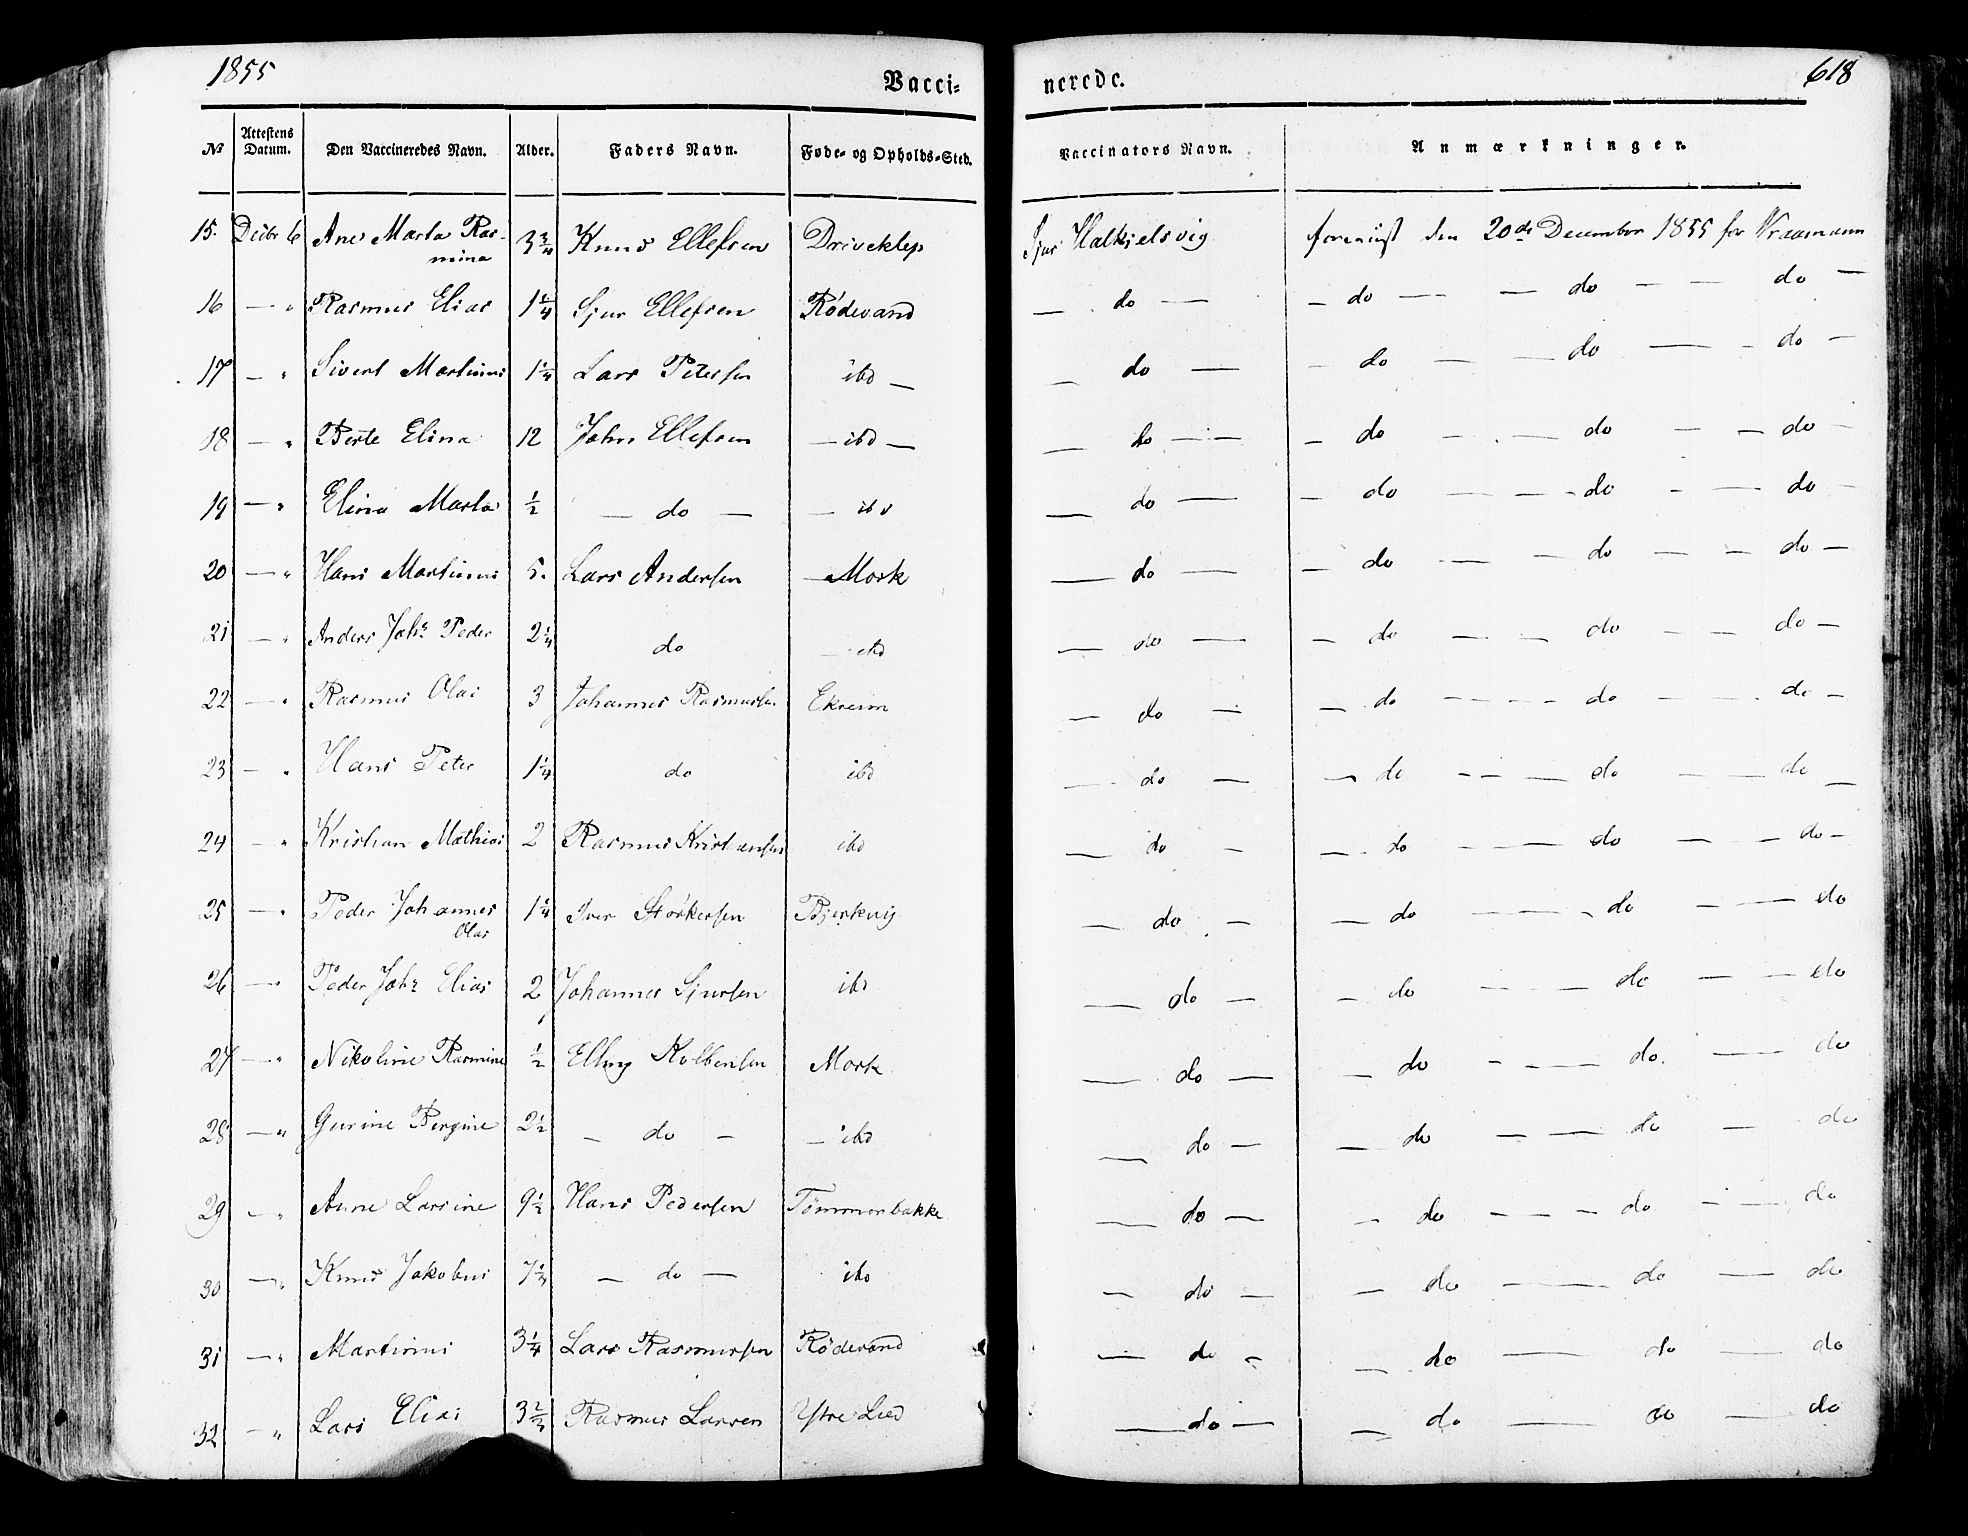 1855
Vacci-
nerede.
618
№ Attestens Datum. Den Vaccineredes Navn. Alder. Faders Navn. Føde- og Opholds-Sted. Vaccinators Navn. Anmærkninger.
15. Decbr 6 Ane Marta Ras- 3 3/4 Knud Ellefsen Driveklep Sjur Halkjelsvig foreviist den 20de December 1855 for
mina
16 — " Rasmus Elias 1 1/4 Sjur Ellefsen Rødevand — do — — do — — do — — do —
17 — " Sivert Martinus 1 1/4 Lars Petersen ibd — — do — — do — — do — — do —
18 — " Berte Elina 12 John Ellefsen — ibd — — do — — do — — do — — do —
19 — " Elina Marta 1/2 — do — — ibd — do — — do — — do — — do —
20 — " Hans Martinus 5. Lars Andersen — Mork — do — — do — — do — — do —
21 — " Anders Johs Peder 2 1/4 do — ibd — do — — do — — do — — do —
22 — " Rasmus Olai 3 Johannes Rasmussen Ekreim — do — — do — — do — — do —
23 — " Hans Peter 1 1/4 do ibd — do — — do — — do — — do —
24 — " Kristian Mathias 2 Rasmus Kristiansen ibd — do — — do — — do — — do —
25 — " Peder Johannes 1 1/4 Iver Størkersen Bjerkvig — do — — do — — do — — do
Olai
26 — " Peder Johs Elias 2 Johannes Sjursen ibd — do — — do — — do — — do
27 — " Nikoline Rasmine 1/2 Elling Kolbensen Mork — do — — do — — do. — do
28 — " Gurine Bergine 2 1/2 — do — — ibd — do — — do — — do — do
29 — " Anne Larsine 9 1/2 Hans Pedersen Tømmerbakke — do — — do — — do — — do
30 — " Knud Jakobus 7 1/2 — do — ibd — do — — do — do — do
31 — " Martinus 3 1/4 Lars Rasmussen Rødevand — do — — do — do — do
32 — " Lars Elias 3 2/3 Rasmus Larsen Ytre Lied — do — — do — do — do